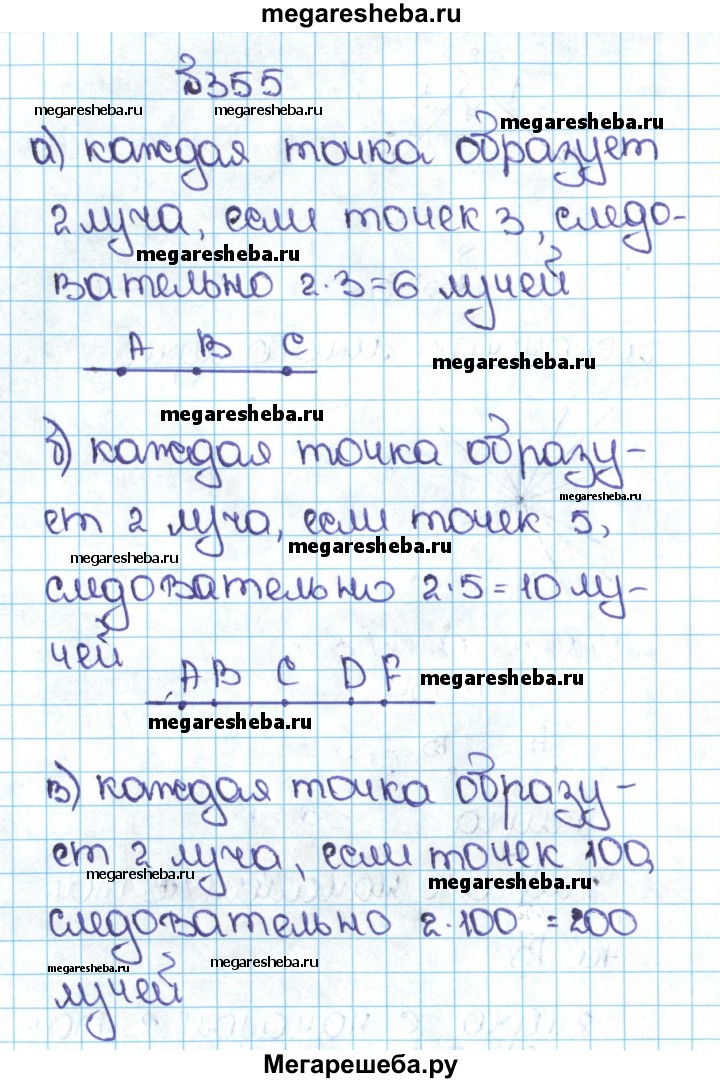 megaresheba.ru
№355
megaresheba.ru megaresheba.ru
megaresheba.ru
а) каждая точка образует
2 луча, если точек 3, следо-
megaresheba.ru
вательно 2·3=6 лучей
A B C
megaresheba.ru
megaresheba.ru
б) каждая точка образу-
megaresheba.ru
ет 2 луча, если точек 5,
megaresheba.ru
megaresheba.ru
следовательно 2·5=10 лу-
чей
A B C D F
megaresheba.ru
megaresheba.ru
в) каждая точка образу-
ет 2 луча, если точек 100,
megaresheba.ru
megaresheba.ru
следовательно 2·100=200
megaresheba.ru
megaresheba.ru
лучей
Мегарешеба.ру